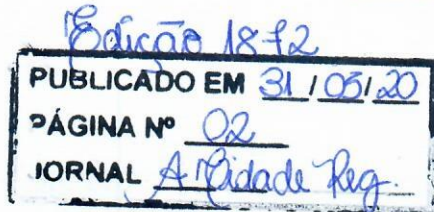 Edição 1872
PUBLICADO EM 31/03/20
PÁGINA Nº 02
JORNAL A Cidade Reg.